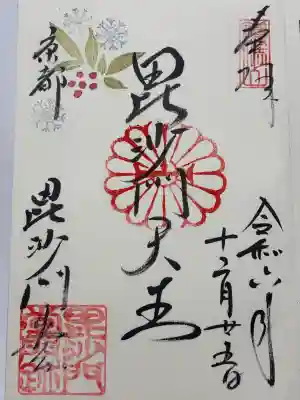 奉拝
令和六年
十二月廿五日
毘沙門天王
京都
毘沙門堂